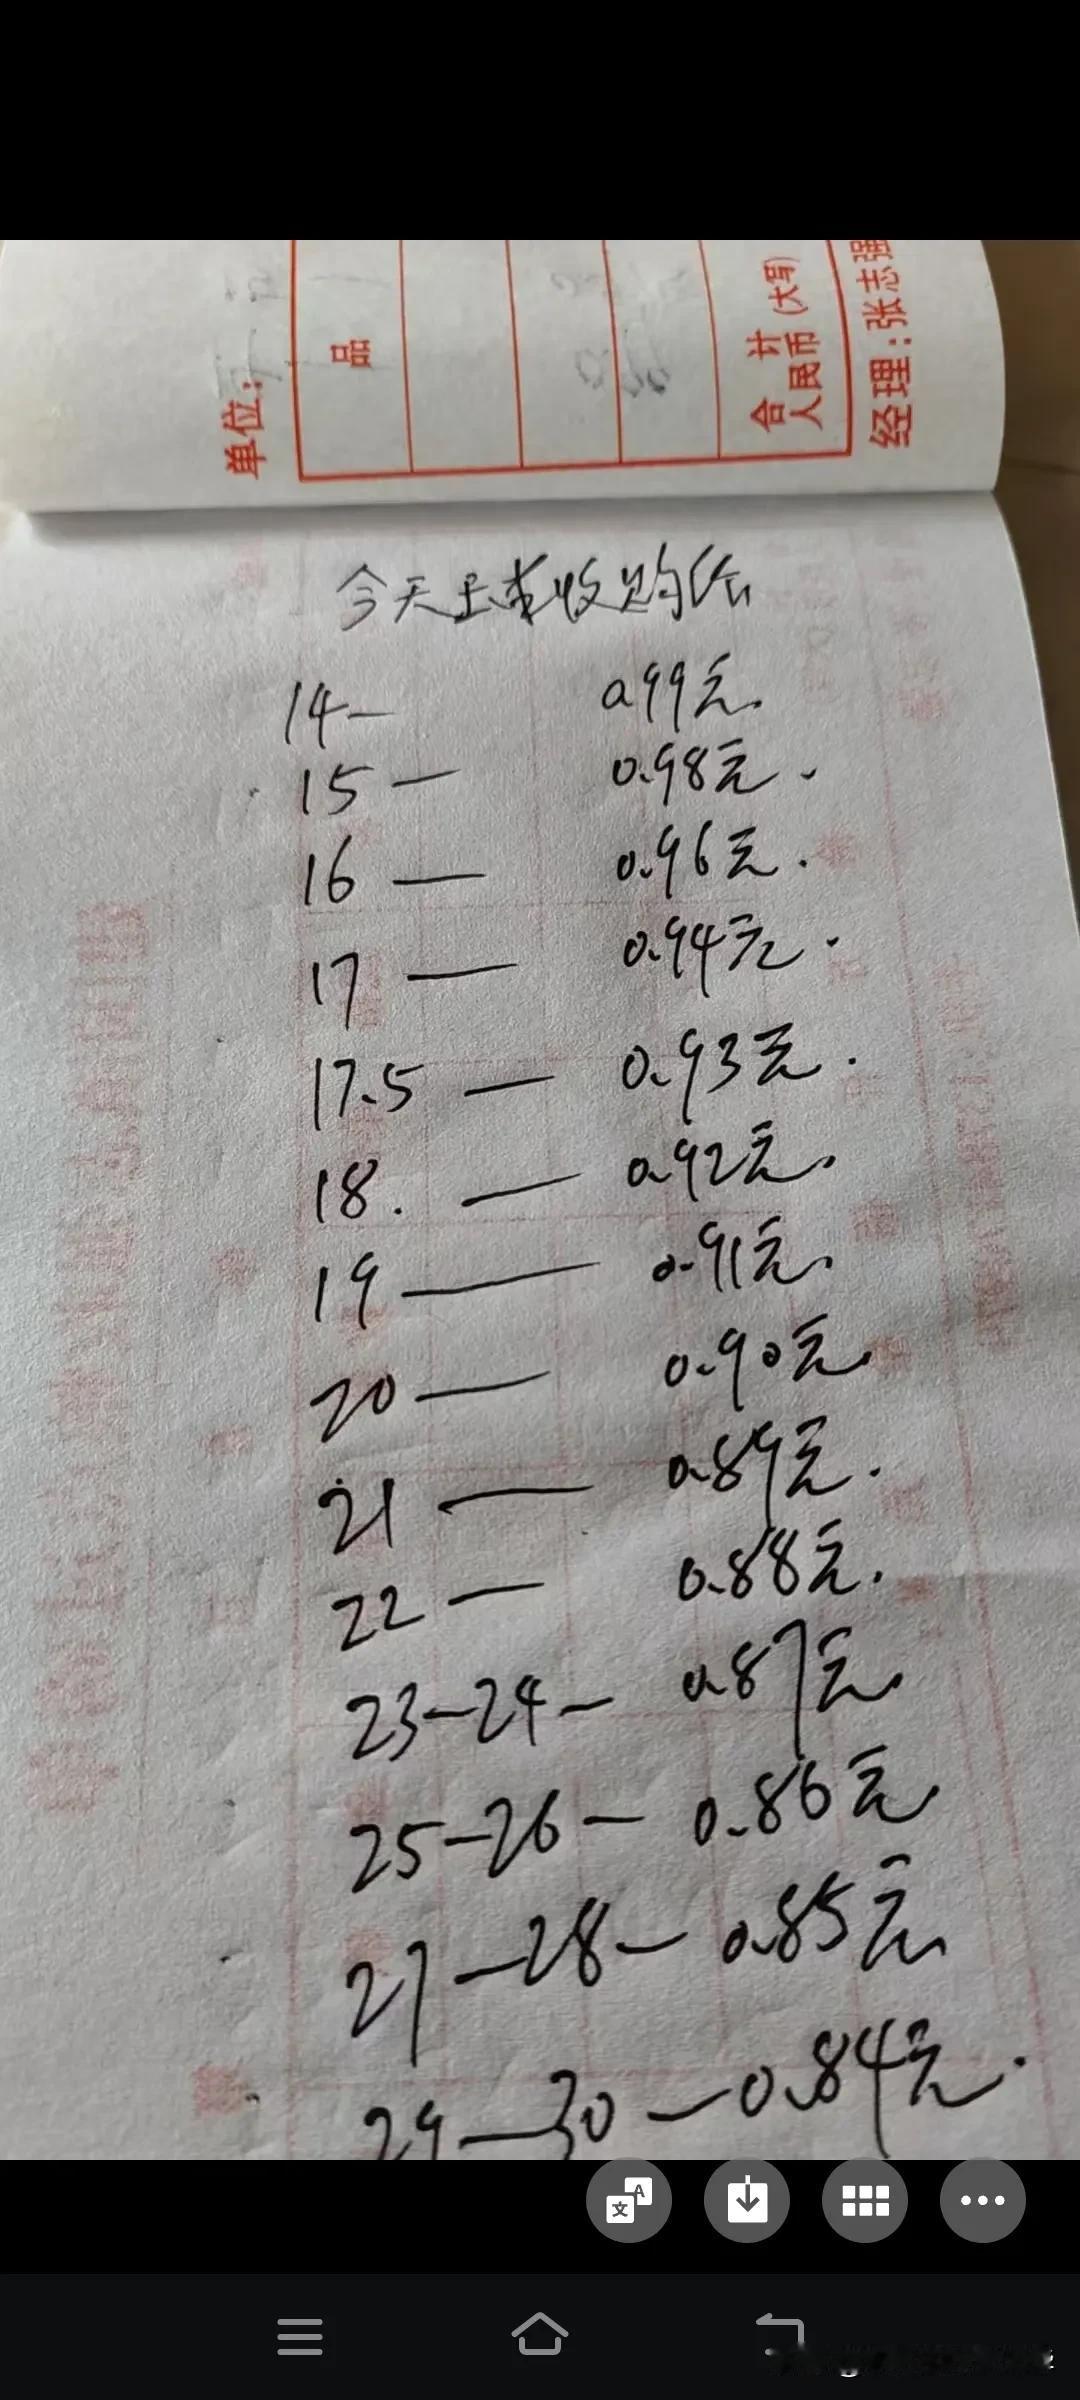 单位：
品
合 计
人民币(大写)
经理：张志强
今天玉米收购价
14— 0.99元.
15— 0.98元.
16— 0.96元.
17— 0.94元.
17.5— 0.93元.
18.— 0.92元.
19— 0.91元.
20— 0.90元.
21— 0.89元.
22— 0.88元.
23-24- 0.87元.
25-26- 0.86元.
27-28- 0.85元.
29-30-0.84元.